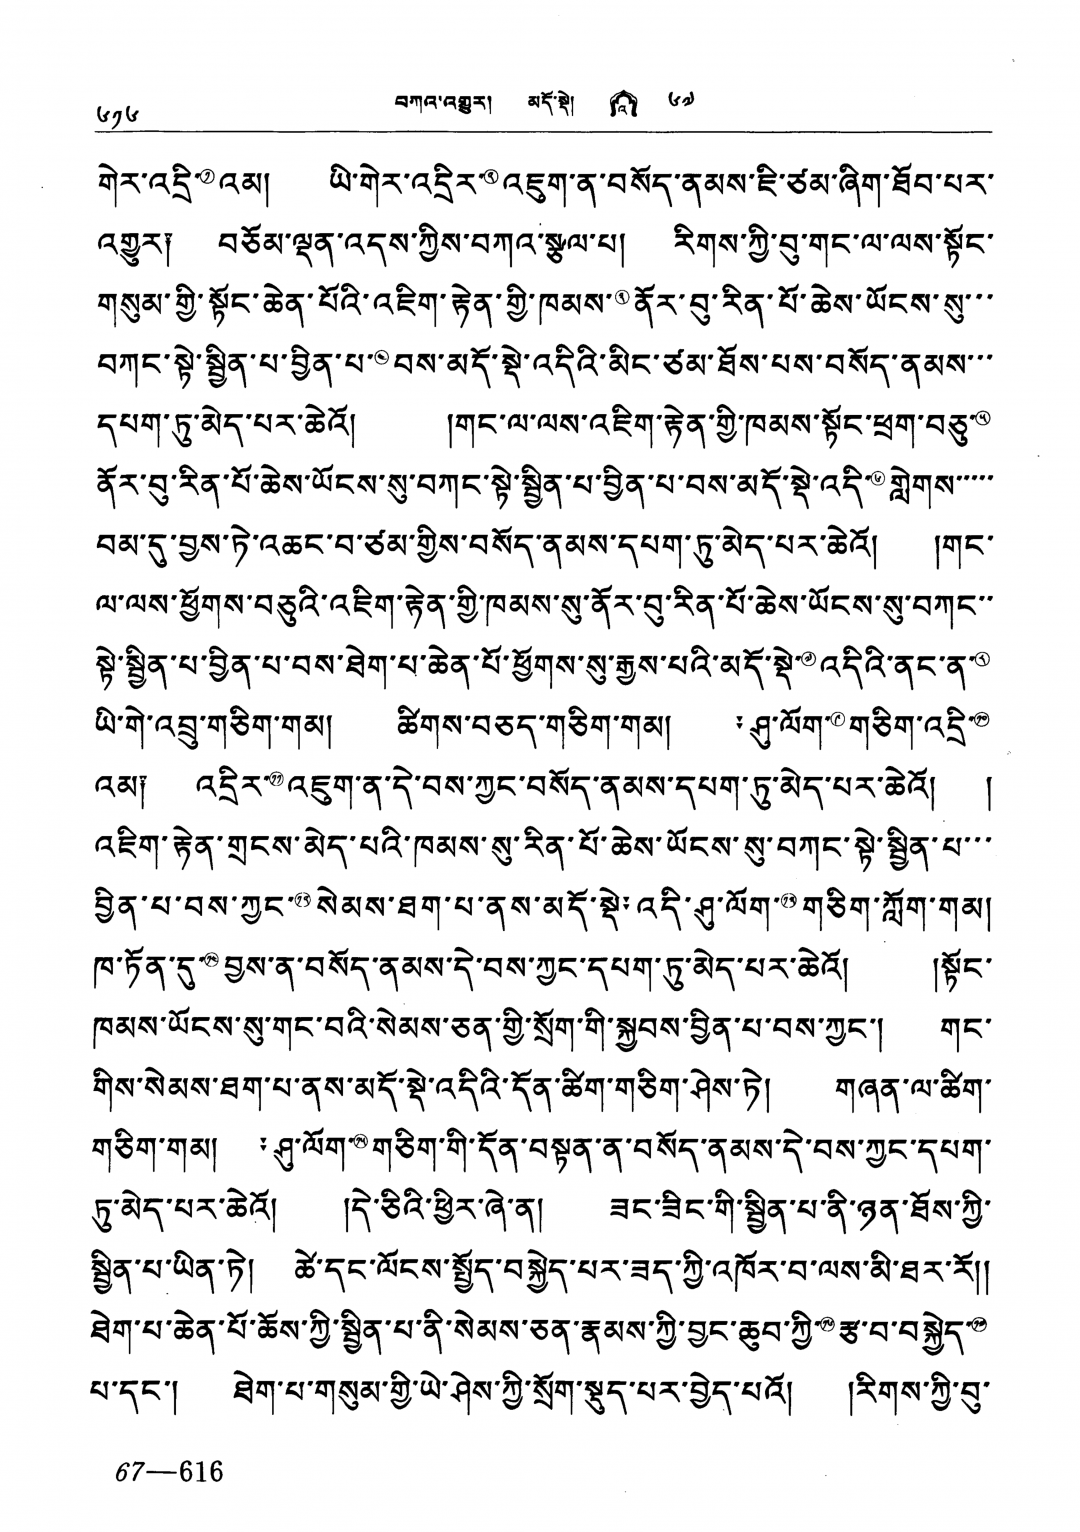 ༦༡༦ བཀའ་འགྱུར། མདོ་སྡེ། འ ༦༧
གེར་འདྲི་༡་འམ། ཡི་གེར་འདྲིར་༢་འཇུག་ན་བསོད་ནམས་ཇི་ཙམ་ཞིག་ཐོབ་པར་
འགྱུར༑ བཅོམ་ལྡན་འདས་ཀྱིས་བཀའ་སྩལ་པ། རིགས་ཀྱི་བུ་གང་ལ་ལས་སྟོང་
གསུམ་གྱི་སྟོང་ཆེན་པོའི་འཇིག་རྟེན་གྱི་ཁམས་༣་ནོར་བུ་རིན་པོ་ཆེས་ཡོངས་སུ་་་
བཀང་སྟེ་སྦྱིན་པ་བྱིན་པ་༤་བས་མདོ་སྡེ་འདིའི་མིང་ཙམ་ཐོས་པས་བསོད་ནམས་་་
དཔག་ཏུ་མེད་པར་ཆེའོ། །གང་ལ་ལས་འཇིག་རྟེན་གྱི་ཁམས་སྟོང་ཕྲག་བཅུ་༥
ནོར་བུ་རིན་པོ་ཆེས་ཡོངས་སུ་བཀང་སྟེ་སྦྱིན་པ་བྱིན་པ་བས་མདོ་སྡེ་འདི་༦་གླེགས་་་་་
བམ་དུ་བྱས་ཏེ་འཆང་བ་ཙམ་གྱིས་བསོད་ནམས་དཔག་ཏུ་མེད་པར་ཆེའོ། །གང་
ལ་ལས་ཕྱོགས་བཅུའི་འཇིག་རྟེན་གྱི་ཁམས་སུ་ནོར་བུ་རིན་པོ་ཆེས་ཡོངས་སུ་བཀང་་་
སྟེ་སྦྱིན་པ་བྱིན་པ་བས་ཐེག་པ་ཆེན་པོ་ཕྱོགས་སུ་རྒྱས་པའི་མདོ་སྡེ་༧་འདིའི་ནང་ན་༨
ཡི་གེ་འབྲུ་གཅིག་གམ། ཚིགས་བཅད་གཅིག་གམ། ༑ཤུ་ལོག་༩་གཅིག་འདྲི་༡༠
འམ༑ འདྲིར་༡༡་འཇུག་ན་དེ་བས་ཀྱང་བསོད་ནམས་དཔག་ཏུ་མེད་པར་ཆེའོ། །
འཇིག་རྟེན་གྲངས་མེད་པའི་ཁམས་སུ་རིན་པོ་ཆེས་ཡོངས་སུ་བཀང་སྟེ་སྦྱིན་པ་་་
བྱིན་པ་བས་ཀྱང་༡༢་སེམས་ཐག་པ་ནས་མདོ་སྡེ༑འདི་ཤུ་ལོག་༡༣་གཅིག་ཀློག་གམ།
ཁ་ཏོན་དུ་༡༤་བྱས་ན་བསོད་ནམས་དེ་བས་ཀྱང་དཔག་ཏུ་མེད་པར་ཆེའོ། །སྟོང་
ཁམས་ཡོངས་སུ་གང་བའི་སེམས་ཅན་གྱི་སྲོག་གི་སྐྱབས་བྱིན་པ་བས་ཀྱང་། གང་
གིས་སེམས་ཐག་པ་ནས་མདོ་སྡེ་འདིའི་དོན་ཚིག་གཅིག་ཤེས་ཏེ། གཞན་ལ་ཚིག་
གཅིག་གམ། ༑ཤུ་ལོག་༡༥་གཅིག་གི་དོན་བསྟན་ན་བསོད་ནམས་དེ་བས་ཀྱང་དཔག་
ཏུ་མེད་པར་ཆེའོ། །དེ་ཅིའི་ཕྱིར་ཞེ་ན། ཟང་ཟིང་གི་སྦྱིན་པ་ནི་ཉན་ཐོས་ཀྱི་
སྦྱིན་པ་ཡིན་ཏེ། ཚེ་དང་ལོངས་སྤྱོད་བསྐྱེད་པར་ཟད་ཀྱི་འཁོར་བ་ལས་མི་ཐར་རོ།།
ཐེག་པ་ཆེན་པོ་ཆོས་ཀྱི་སྦྱིན་པ་ནི་སེམས་ཅན་རྣམས་ཀྱི་བྱང་ཆུབ་ཀྱི་༡༦་རྩ་བ་བསྐྱེད་༡༧
པ་དང་། ཐེག་པ་གསུམ་གྱི་ཡེ་ཤེས་ཀྱི་སྲོག་སྡུད་པར་བྱེད་པའོ། །རིགས་ཀྱི་བུ་
67—616